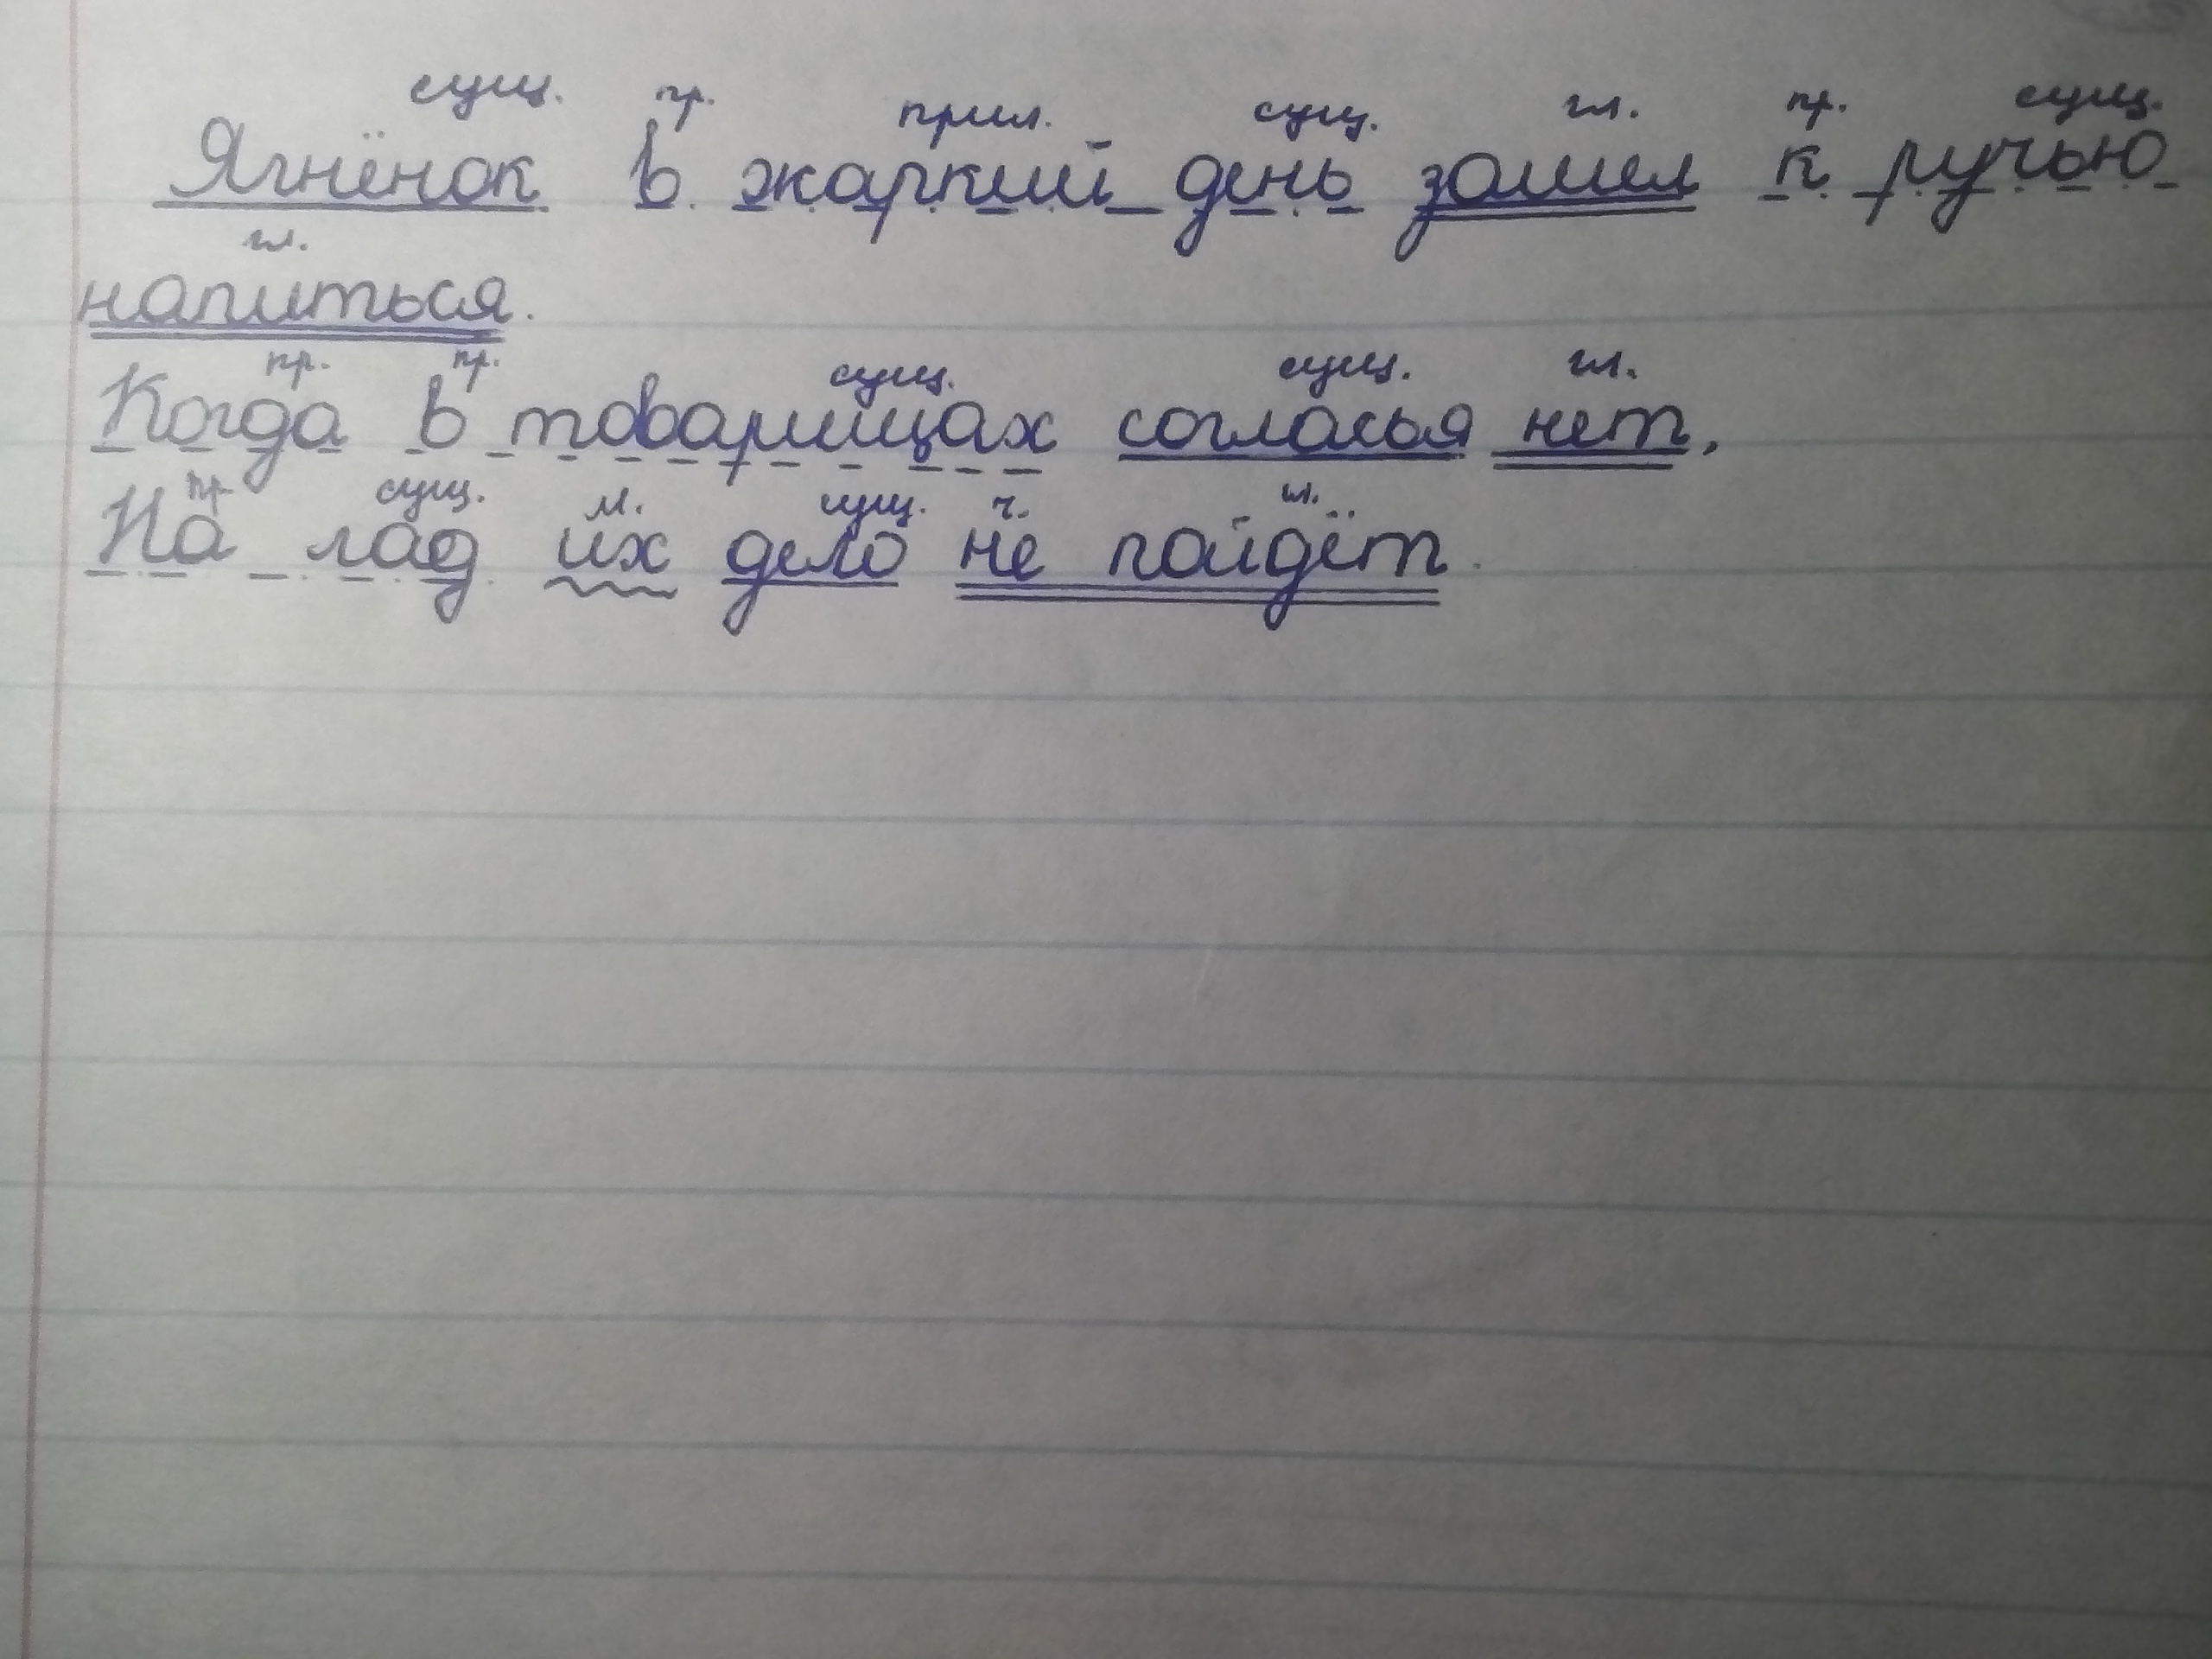 сущ. пр. прил. сущ. гл. пр. сущ.
Ягнёнок в жаркий день зашел к ручью
гл.
напиться.
пр. пр. сущ. сущ. гл.
Когда в товарищах согласья нет,
пр сущ. м. сущ. ч. гл.
На лад их дело не пойдёт.